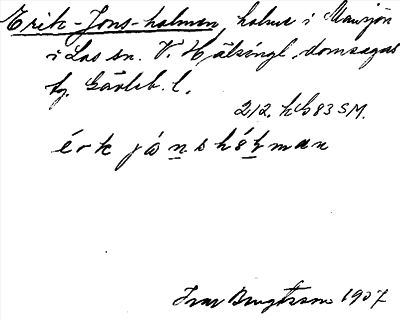 Erik-Jons-holmen, holme i Mansjön
i Los sn. V. Hälsingl. domsagas
tg. Gävleb. l.
212. kb 83 SM.
érk jó̱ns hó̱ɫman
Ivar Bengtsson 1907